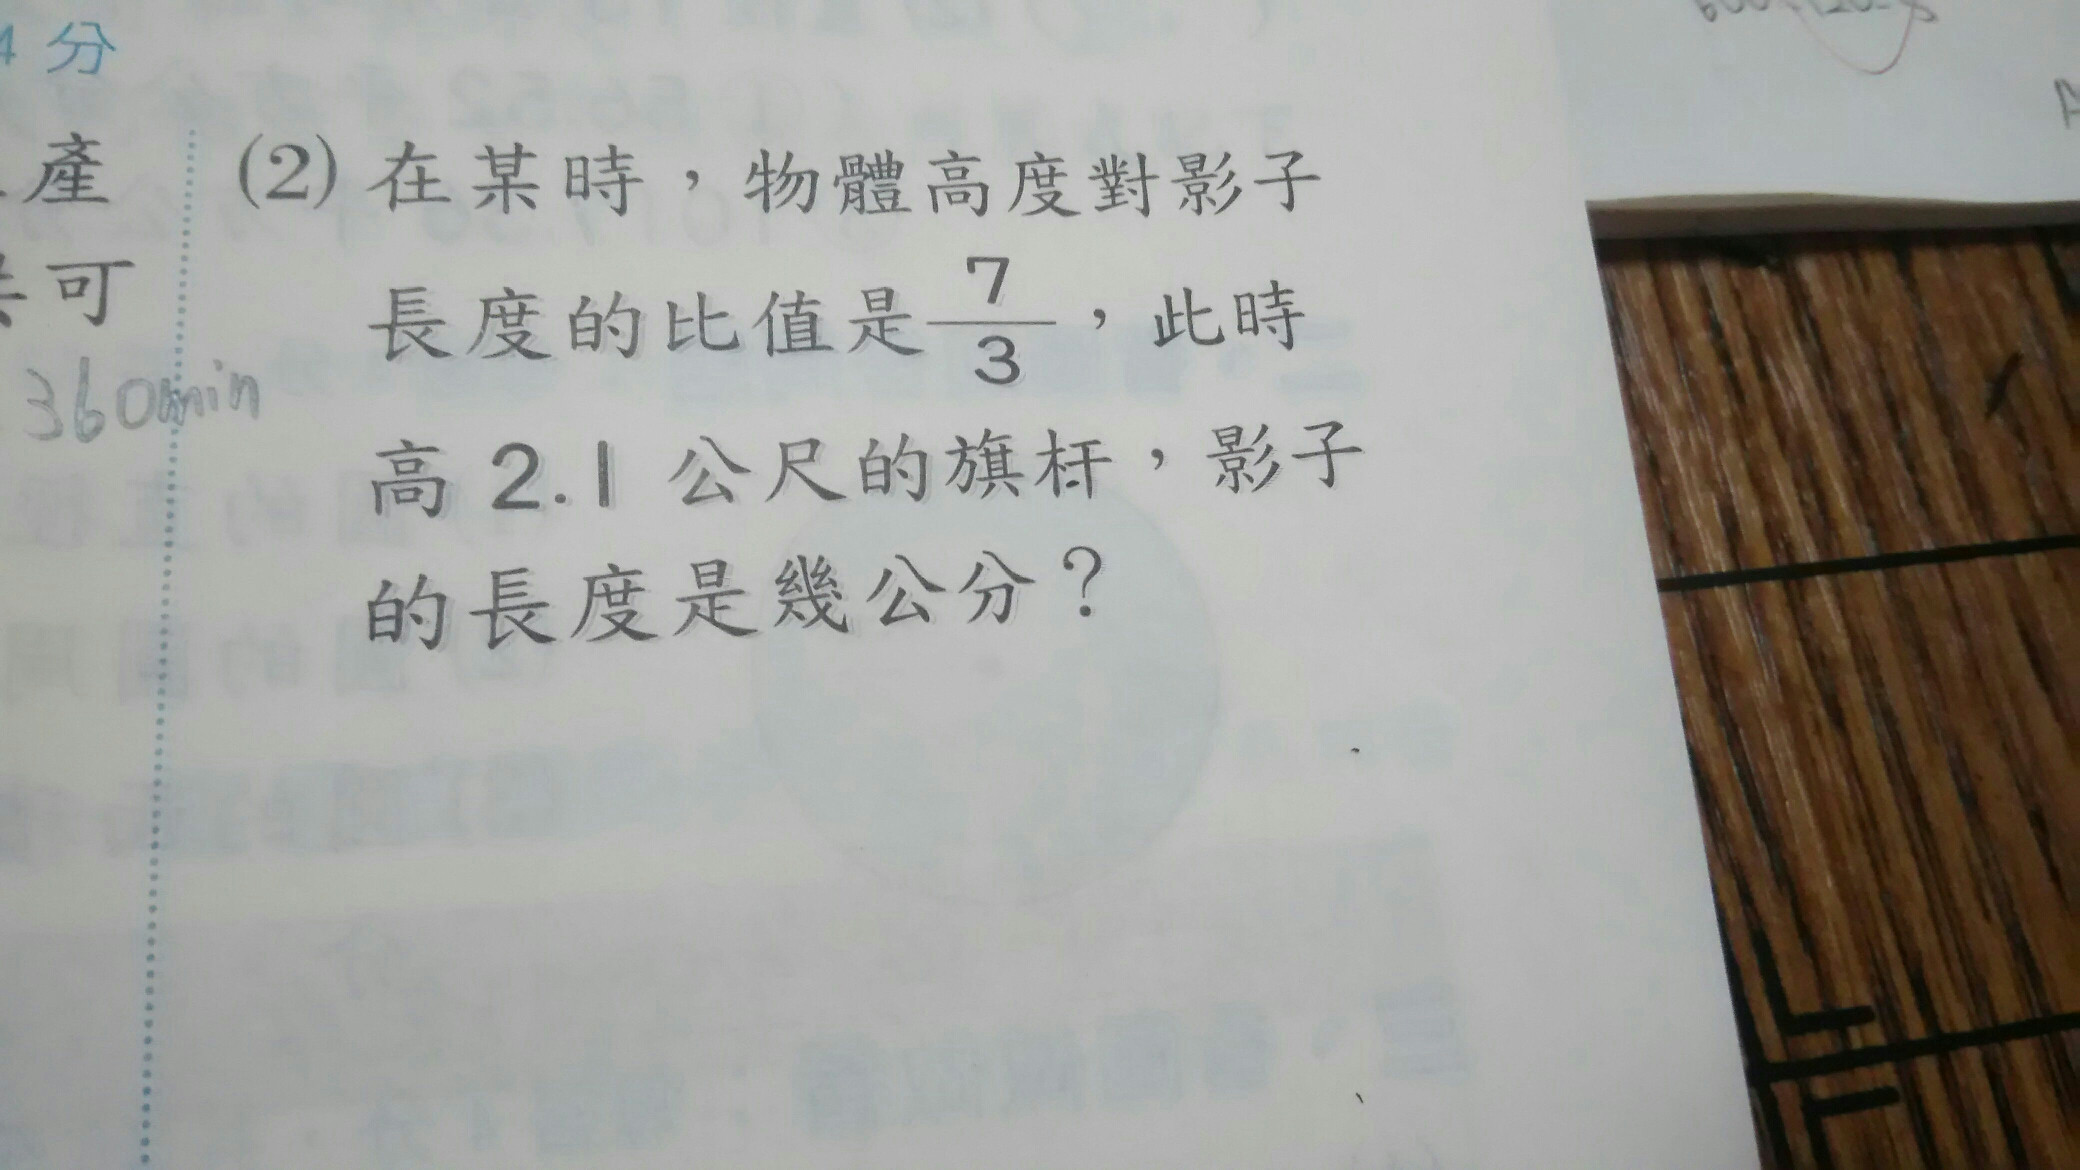 4 分
產
可
360min
(2) 在某時，物體高度對影子
長度的比值是7/3，此時
高 2.1 公尺的旗杆，影子
的長度是幾公分？